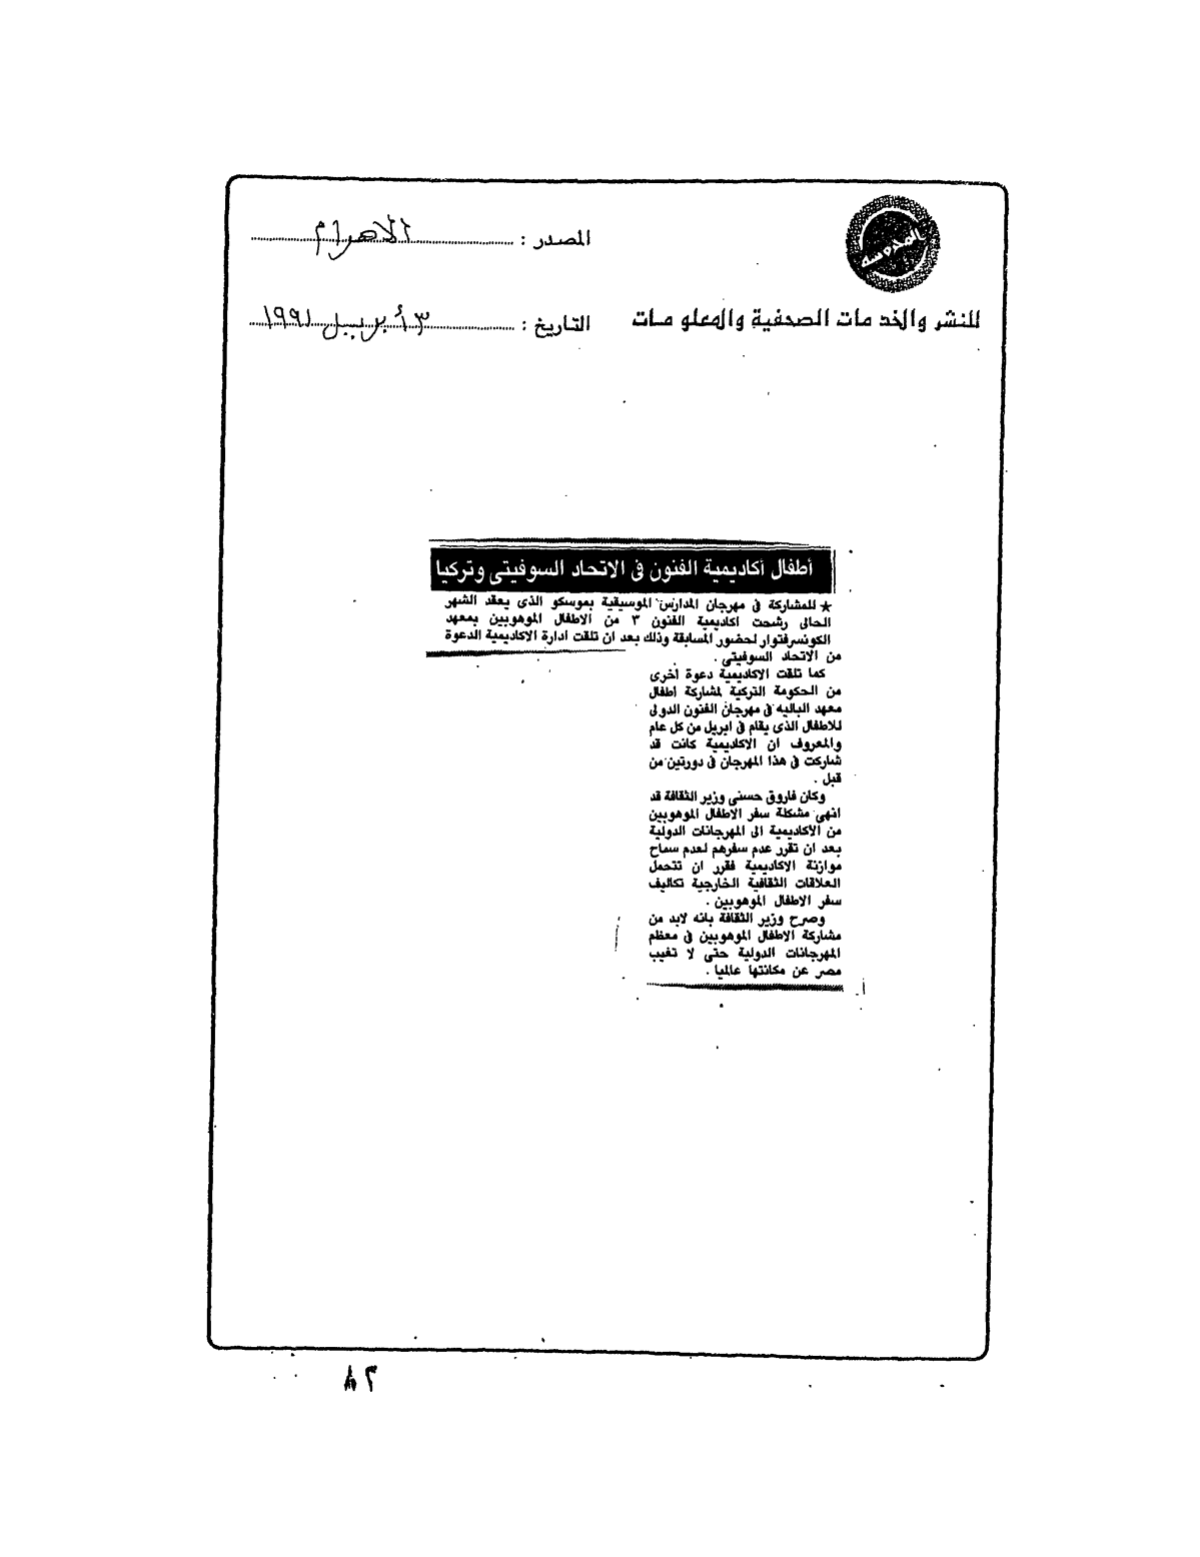 المصدر : الاهرام
للنشر والخدمات الصحفية والمعلومات
التاريخ : ٣ أبريل ١٩٩١
أطفال أكاديمية الفنون فى الاتحاد السوفيتى وتركيا
★ للمشاركة فى مهرجان المدارس الموسيقية بموسكو الذى يعقد الشهر
الحالى رشحت اكاديمية الفنون ٣ من الاطفال الموهوبين بمعهد
الكونسرفتوار لحضور المسابقة وذلك بعد ان تلقت ادارة الاكاديمية الدعوة
من الاتحاد السوفيتى .
كما تلقت الاكاديمية دعوة أخرى
من الحكومة التركية لمشاركة أطفال
معهد الباليه فى مهرجان الفنون الدولى
للاطفال الذى يقام فى ابريل من كل عام
والمعروف ان الاكاديمية كانت قد
شاركت فى هذا المهرجان فى دورتين من
قبل .
وكان فاروق حسنى وزير الثقافة قد
انهى مشكلة سفر الاطفال الموهوبين
من الاكاديمية الى المهرجانات الدولية
بعد ان تقرر عدم سفرهم لعدم سماح
موازنة الاكاديمية فقرر ان تتحمل
العلاقات الثقافية الخارجية تكاليف
سفر الاطفال الموهوبين .
وصرح وزير الثقافة بانه لابد من
مشاركة الاطفال الموهوبين فى معظم
المهرجانات الدولية حتى لا تغيب
مصر عن مكانتها عالميا .